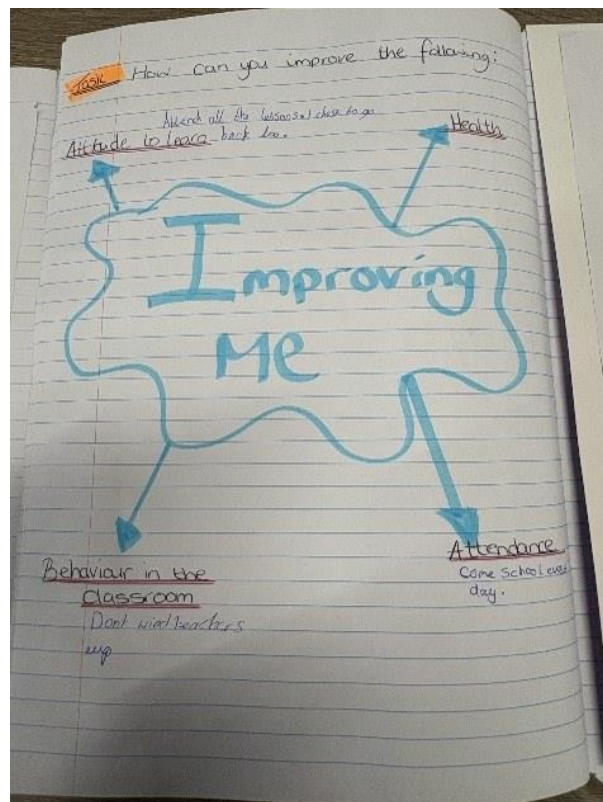 Task How can you improve the following:
Attend all the lessons I chose to go
Attitude to learn back too.
Health
Improving
Me
Behaviour in the
classroom
Dont wind teachers
up
Attendance
Come School every
day.